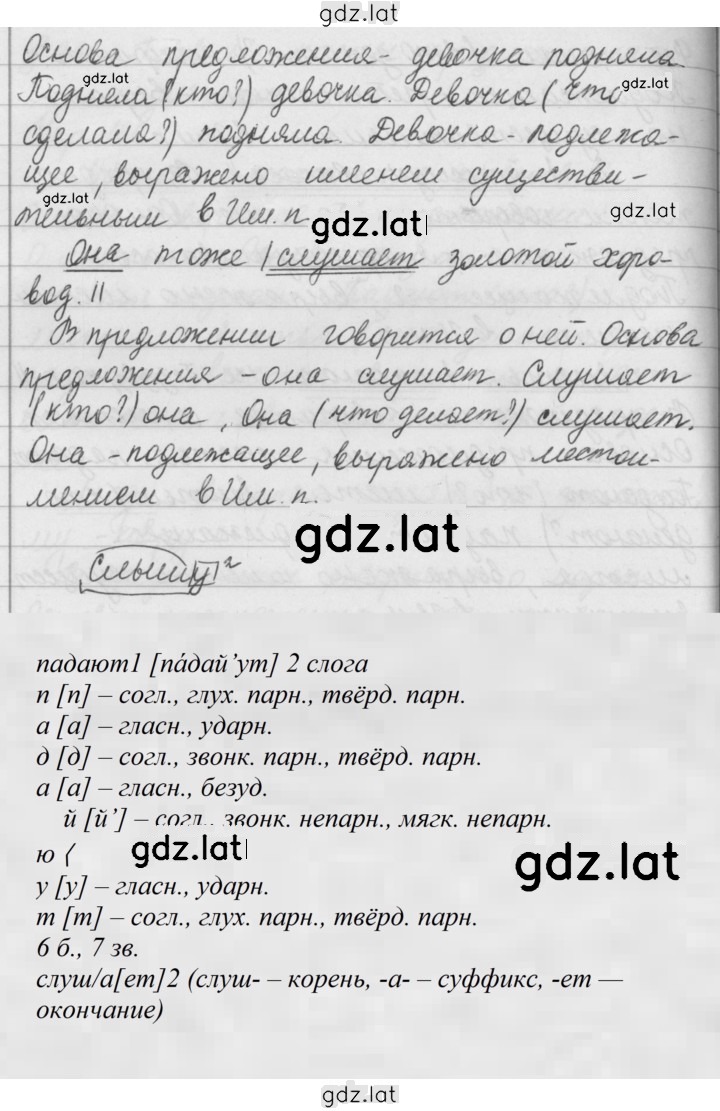 gdz.lat
Основа предложения - девочка подняла.
gdz.lat
gdz.lat
Подняла (кто?) девочка. Девочка (что
сделала?) подняла. Девочка - подлежа-
щее, выражено именем существи-
gdz.lat
gdz.lat
тельным в Им. п.
gdz.lat
Она тоже | слушает золотой хоро-
вод. II
В предложении говорится о ней. Основа
предложения - она слушает. Слушает
(кто?) она, Она (что делает?) слушает.
Она - подлежащее, выражено местои-
мением в Им. п.
gdz.lat
2
падают1 [па́дай’ут] 2 слога
п [п] – согл., глух. парн., твёрд. парн.
а [а] – гласн., ударн.
д [д] – согл., звонк. парн., твёрд. парн.
а [а] – гласн., безуд.
й [й’] – согл., звонк. непарн., мягк. непарн.
gdz.lat
gdz.lat
ю ⟨
у [у] – гласн., ударн.
т [т] – согл., глух. парн., твёрд. парн.
6 б., 7 зв.
слуш/а[ет]2 (слуш- – корень, -а- – суффикс, -ет —
окончание)
gdz.lat